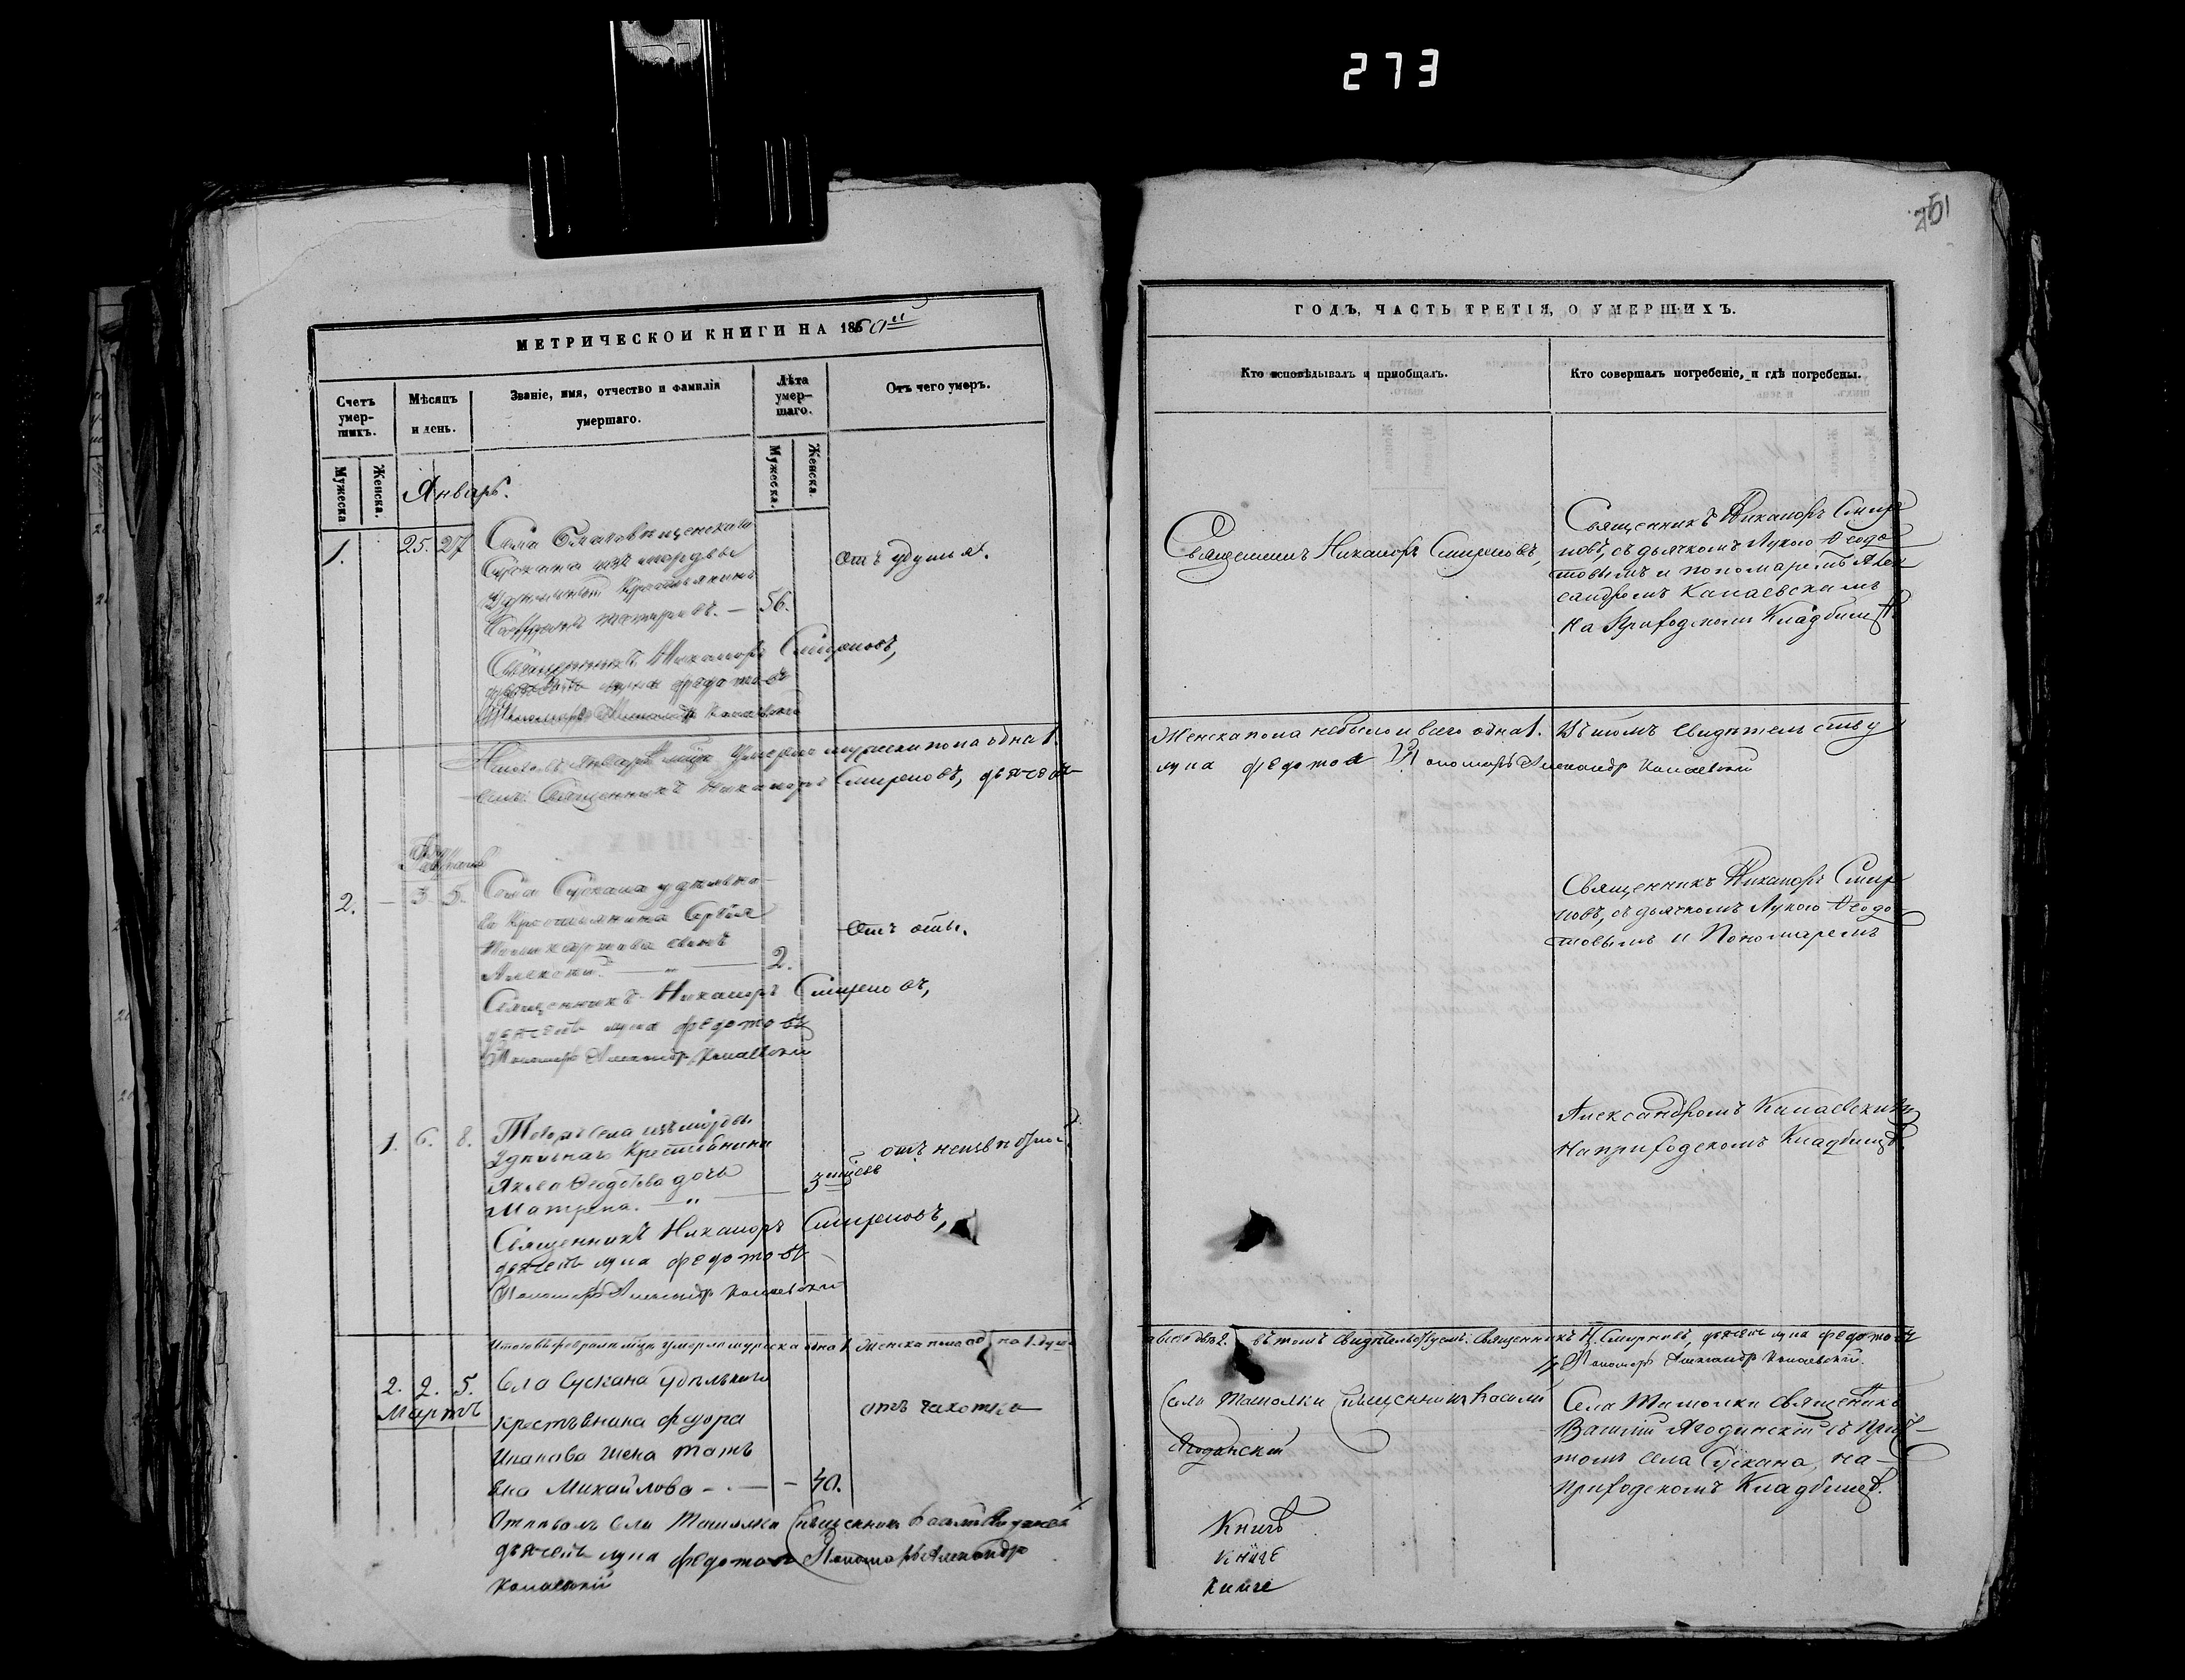 273
251
МЕТРИЧЕСКОЙ КНИГИ НА 1860й
Счетъ умер-шихъ.
Мѣсяцъ и день.
Званіе, имя, отчество и фамилія умершаго.
Лѣта умер-шаго.
Отъ чего умеръ.
Мужеска
Женска.
Мужеска.
Женска.
Январь.
1.
25. 27
Села Благовѣщенскаго
Сускана изъ мордвы
Удѣльный Крестьянинъ
56.
отъ удушья.
Священникъ Никаноръ Смирновъ,
дьячекъ лука федотовъ
Пономарь Александр Канаевский
Итого въ Январѣ мцѣ Умерло мужеска пола одна 1.
Священникъ Никаноръ Смирновъ, дьячекъ
Февраль
2. — 3 5.
Села Сускана удѣльна-
го Крестьянина Сергѣя
сынъ
Алексѣй. — 2.
отъ оспы.
Священникъ Никаноръ Смирновъ,
дьячекъ лука федотовъ
Пономарь Александр Канаевский
1. 6. 8.
Тогожъ села изъ мордвы
Удѣльнаго Крестьянина
Якова Феодотова дочь
Матрена. — 3 мцсвъ
отъ неизвѣстной
Священникъ Никаноръ Смирновъ,
дьячекъ лука федотовъ
Пономарь Александр Канаевский
Итого въ феврале мцѣ умерло мужеска одна 1. Женска пола одна 1. душ.
2. 2. 5.
Мартъ
Села Сускана удѣльнаго
крестьянина федора
Иванова жена Тать
яна Михайлова — 40.
отъ чахотки
Отпѣвалъ села Ташолки священник Василий
дьячекъ лука федотовъ Пономарь Александр
Канаевский
ГОДЪ, ЧАСТЬ ТРЕТІЯ, О УМЕРШИХЪ.
Кто исповѣдывалъ и пріобщалъ.
Кто совершалъ погребеніе, и гдѣ погребены.
Священникъ Никаноръ Смирновъ,
Священникъ Никаноръ Смир
новъ, съ дьячкомъ Лукою Феодо
товымъ и пономаремъ Алек
сандромъ Канаевскимъ
На Приходскомъ Кладбищѣ
Женска пола небыло и всего одна 1. Въ томъ свидѣтельству
лука федотов Пономарь Александр Канаевский
Священникъ Никаноръ Смир
новъ, съ дьячкомъ Лукою Феодо
товымъ и Пономаремъ
Александромъ Канаевскимъ
На приходскомъ Кладбищѣ
а всего двѣ 2. въ томъ свидѣтельствуемъ. Священникъ Н. Смирновъ, дьячекъ лука федотовъ
Пономарь Александр Канаевский.
Села Ташолки Священникъ Василий
Ягодинский
Села Ташолки Священникъ
Василій Ягодинскій съ прич-
томъ села Сускана, на-
приходскомъ Кладбищѣ.
Книгѣ
книге
книге